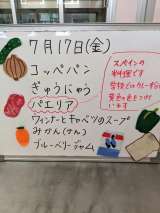 7月17日(金)
コッペパン
ぎゅうにゅう
パエリア
ウィンナーとキャベツのスープ
みかん(かん)
ブルーベリージャム
スペインの
料理です
学校ではカレー粉で
黄色の色をつけて
います